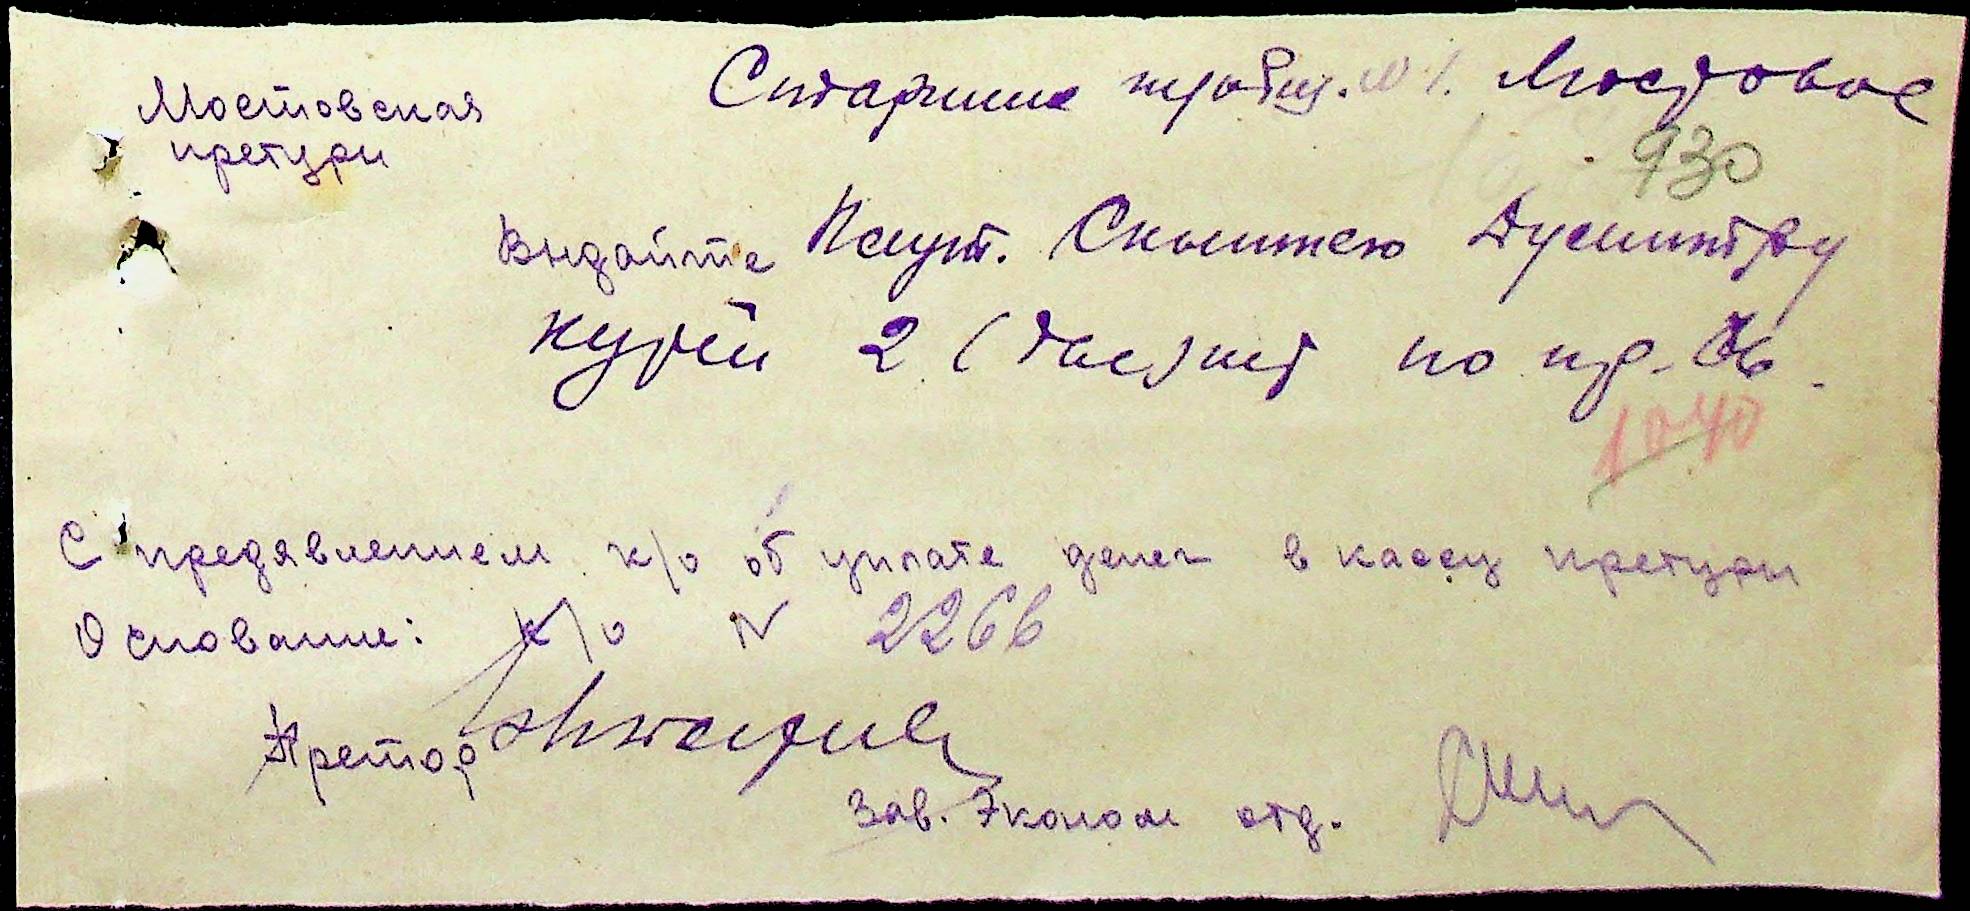 Мостовская
претури
Старшине Мостовое
930
Выдайте Скличею Думитру
курей 2 (две) шт по пр.
1040
С предявлением к/о об уплате денег в кассу претури
Основание: к/о N 2266
Претор
Зав. Эконом отд.